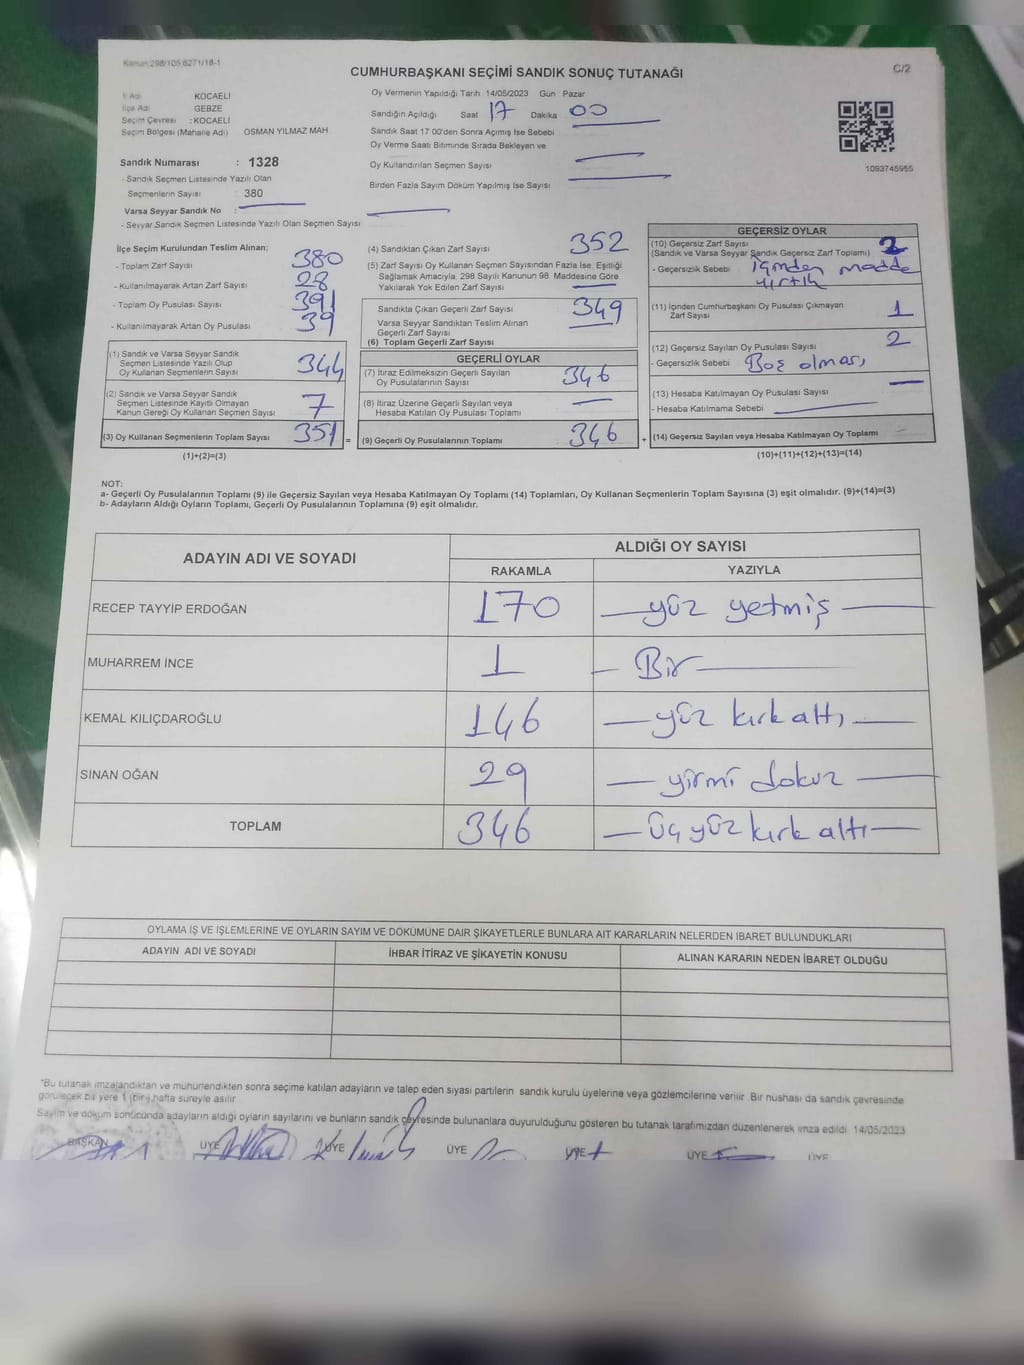 Kanun:298/105,6271/18-1
C/2
CUMHURBAŞKANI SEÇİMİ SANDIK SONUÇ TUTANAĞI
İl Adı KOCAELİ
İlçe Adı GEBZE
Seçim Çevresi : KOCAELİ
Seçim Bölgesi (Mahalle Adı) OSMAN YILMAZ MAH
Sandık Numarası : 1328
- Sandık Seçmen Listesinde Yazılı Olan
Seçmenlerin Sayısı : 380
Varsa Seyyar Sandık No :
- Seyyar Sandık Seçmen Listesinde Yazılı Olan Seçmen Sayısı
Oy Vermenin Yapıldığı Tarih 14/05/2023 Gün Pazar
Sandığın Açıldığı Saat 17 Dakika 00
Sandık Saat 17 00'den Sonra Açımış İse Sebebi
Oy Verme Saati Bitiminde Sırada Bekleyen ve
Oy Kullandırılan Seçmen Sayısı
Birden Fazla Sayım Döküm Yapılmış İse Sayısı
1093745955
İlçe Seçim Kurulundan Teslim Alınan;
- Toplam Zarf Sayısı 380
- Kullanılmayarak Artan Zarf Sayısı 28
- Toplam Oy Pusulası Sayısı 391
- Kullanılmayarak Artan Oy Pusulası 39
(1) Sandık ve Varsa Seyyar Sandık
Seçmen Listesinde Yazılı Olup
Oy Kullanan Seçmenlerin Sayısı 344
(2) Sandık ve Varsa Seyyar Sandık
Seçmen Listesinde Kayıtlı Olmayan
Kanun Gereği Oy Kullanan Seçmen Sayısı 7
(3) Oy Kullanan Seçmenlerin Toplam Sayısı 351 =
(1)+(2)=(3)
(4) Sandıktan Çıkan Zarf Sayısı 352
(5) Zarf Sayısı Oy Kullanan Seçmen Sayısından Fazla İse, Eşitliği
Sağlamak Amacıyla, 298 Sayılı Kanunun 98. Maddesine Göre
Yakılarak Yok Edilen Zarf Sayısı
Sandıkta Çıkan Geçerli Zarf Sayısı 349
Varsa Seyyar Sandıktan Teslim Alınan
Geçerli Zarf Sayısı
(6) Toplam Geçerli Zarf Sayısı
GEÇERLİ OYLAR
(7) İtiraz Edilmeksizin Geçerli Sayılan
Oy Pusulalarının Sayısı 346
(8) İtiraz Üzerine Geçerli Sayılan veya
Hesaba Katılan Oy Pusulası Toplamı
(9) Geçerli Oy Pusulalarının Toplamı 346 +
GEÇERSİZ OYLAR
(10) Geçersiz Zarf Sayısı 2
(Sandık ve Varsa Seyyar Sandık Geçersiz Zarf Toplamı)
- Geçersizlik Sebebi içinden madde
yırtık
(11) İçinden Cumhurbaşkanı Oy Pusulası Çıkmayan
Zarf Sayısı 1
(12) Geçersiz Sayılan Oy Pusulası Sayısı 2
- Geçersizlik Sebebi Boş olması
(13) Hesaba Katılmayan Oy Pusulası Sayısı
- Hesaba Katılmama Sebebi
(14) Geçersiz Sayılan veya Hesaba Katılmayan Oy Toplamı
(10)+(11)+(12)+(13)=(14)
NOT:
a- Geçerli Oy Pusulalarının Toplamı (9) ile Geçersiz Sayılan veya Hesaba Katılmayan Oy Toplamı (14) Toplamları, Oy Kullanan Seçmenlerin Toplam Sayısına (3) eşit olmalıdır. (9)+(14)=(3)
b- Adayların Aldığı Oyların Toplamı, Geçerli Oy Pusulalarının Toplamına (9) eşit olmalıdır.
ADAYIN ADI VE SOYADI ALDIĞI OY SAYISI
RAKAMLA YAZIYLA
RECEP TAYYİP ERDOĞAN 170 yüz yetmiş
MUHARREM İNCE 1 Bir
KEMAL KILIÇDAROĞLU 146 yüz kırk altı
SİNAN OĞAN 29 yirmi dokuz
TOPLAM 346 üç yüz kırk altı
OYLAMA İŞ VE İŞLEMLERİNE VE OYLARIN SAYIM VE DÖKÜMÜNE DAİR ŞİKAYETLERLE BUNLARA AİT KARARLARIN NELERDEN İBARET BULUNDUKLARI
ADAYIN ADI VE SOYADI İHBAR İTİRAZ VE ŞİKAYETİN KONUSU ALINAN KARARIN NEDEN İBARET OLDUĞU
*Bu tutanak imzalandıktan ve mühürlendikten sonra seçime katılan adayların ve talep eden siyasi partilerin sandık kurulu üyelerine veya gözlemcilerine verilir. Bir nüshası da sandık çevresinde
görülecek bir yere 1 (bir) hafta süreyle asılır.
Sayım ve döküm sonucunda adayların aldığı oyların sayılarını ve bunların sandık çevresinde bulunanlara duyurulduğunu gösteren bu tutanak tarafımızdan düzenlenerek imza edildi. 14/05/2023
BAŞKAN ÜYE ÜYE ÜYE ÜYE ÜYE ÜYE